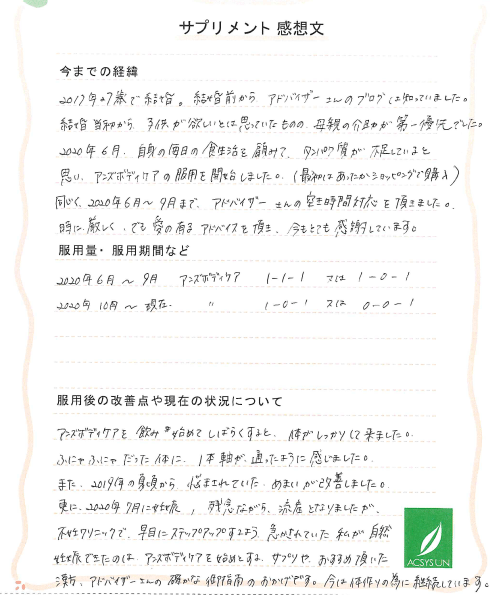 サプリメント 感想文
今までの経緯
2017年 37歳で結婚。結婚前から アドバイザーさんのブログは知っていました。
結婚当初から、子供が欲しいとは思っていたものの、母親の介助が第一優先でした。
2020年6月、自身の毎日の食生活を顧みて、タンパク質が不足していると
思い、アンズボディケアの服用を開始しました。(最初はあったかショッピングで購入)
同じく、2020年6月〜9月まで、アドバイザーさんの空き時間対応を頂きました。
時に厳しく、でも愛の有るアドバイスを頂き、今もとても感謝しています。
服用量・服用期間など
2020年6月 〜 9月 アンズボディケア 1-1-1 又は 1-0-1
2020年 10月 〜 現在 〃 1-0-1 又は 0-0-1
服用後の改善点や現在の状況について
アンズボディケアを飲み始めてしばらくすると、体がしっかりして来ました。
ふにゃふにゃだった体に、1本軸が、通ったように感じました。
また、2019年の夏頃から悩まされていた、めまいが改善しました。
更に、2020年7月に妊娠、残念ながら、流産となりましたが、
不妊クリニックで、早目にステップアップするよう急かされていた私が自然
妊娠できたのは、アンズボディケアを始めとする、サプリや、おすすめ頂いた
漢方、アドバイザーさんの確かな御指南のおかげです。今は体作りの為に継続しています。
ACSYSUN